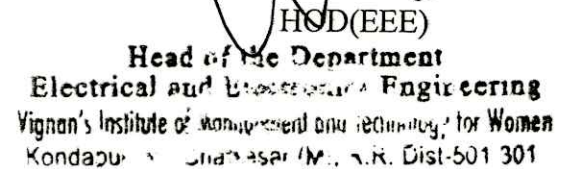 HOD(EEE)
Head of the Department
Electrical and Engineering
Vignan's Institute of Management and Technology for Women
Kondapur Dist-501 301